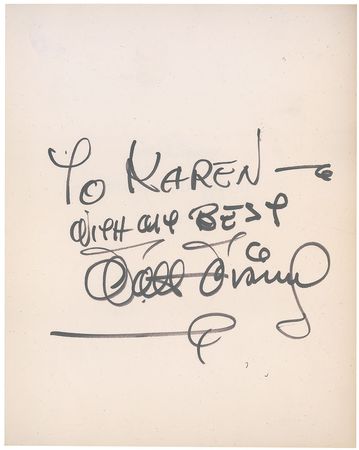 TO KAREN —
WITH MY BEST
Walt Disney